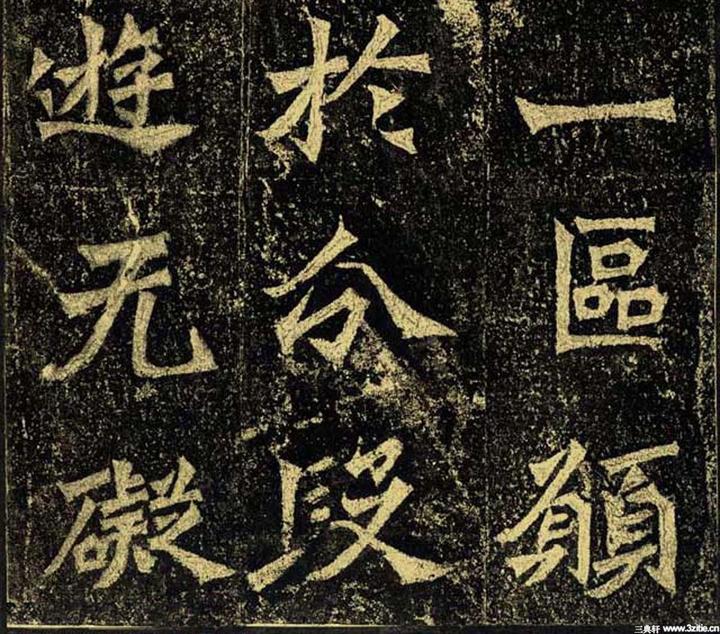 一區願
於分段
遊无礙
三典轩 www.3zitie.cn